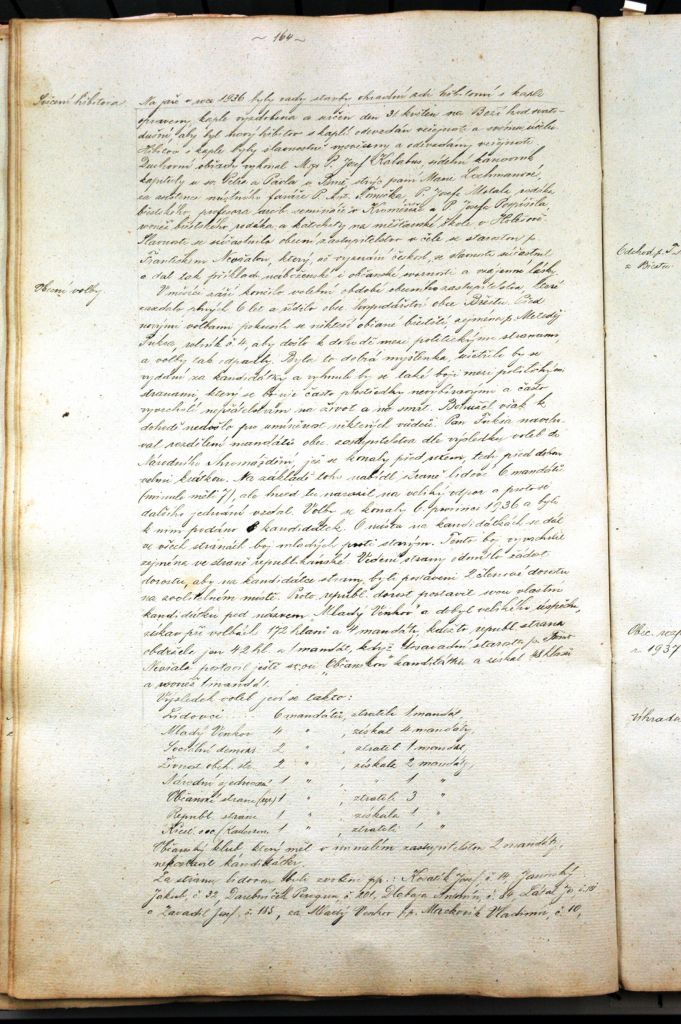 ~ 164 ~
Svěcení hřbitova
Na jaře roce 1936 byly stavby ohradní zdi hřbitovní s kaple
opraveny, kaple vyzdobena a svěcen den 31 května na Boží hod svato-
dušní, aby byl nový hřbitov s kaplí odevzdán veřejnosti a svému účelu.
Hřbitov s kaple byly slavnostně vysvěceny a odevzdány veřejnosti.
Duchovní obřady vykonal Mgr P. Josef Kalabus sídelní kanovník
kapituly u sv. Petra a Pavla v Brně, strýc paní Marie Lechmanové,
za asistence místního faráře P. Ant. Němečka, P. Josefa Matale, rodáka
břestského, profesora v Kroměříži a P. Josefa Pospíšila,
rovněž břestského rodáka a katechety na měšťanské škole v Holešově.
Slavnosti se súčastnilo obecní zastupitelstvo v čele se starostou p.
Františkem Nevšalou, který, ač vyznání českosl. se slavnosti súčastnil
a dal tak příklad náboženské i občanské svornosti a vzájemné lásky.
Obecní volby
V měsíci září končilo volební období obecního zastupitelstva, které
zasedalo plných 6 let a řídilo obec. hospodářství obce Břestu. Před
novými volbami pokusili se někteří občané břestští, zejména p. Metoděj
Fuksa, rolník č. 4, aby došlo k dohodě mezi politickými stranami
a volby tak odpadly. Byla to dobrá myšlenka, ušetřilo by se
vydání za kandidátky a vyhnuli by se také boji mezi politickými
stranami, který se bojuje často prostředky nevybíravými a často
vyvrcholí nepřátelstvím na život a na smrt. Bohužel však k
dohodě nedošlo pro umíněnost některých vůdců. Pan Fuksa navrho-
val rozdělení mandátů obec. zastupitelstva dle výsledku voleb do
Národního shromáždění, jež se konaly před rokem, tedy před dobou
velmi krátkou. Na základě toho nabídl straně lidové 6 mandátů
(minule měli 7), ale hned tu narazil na veliký odpor a proto od
dalšího jednání upustil. Volby se konaly 6. prosince 1936 a bylo
k nim podáno 8 kandidátek. O místa na kandidátkách se dál
ve všech stranách boj mladých proti starým. Tento boj vyvrcholil
zejména ve straně republikánské. Vedení strany odmítlo žádost
dorostu, aby na kandidátce strany byli postaveni 2 členové dorostu
na zvolitelném místě. Proto republ. dorost postavil svou vlastní
kandidátku pod názvem „Mladý Venkov" a dobyl velikého úspěchu,
získav při volbách 172 hlasů a 4 mandáty, kdežto republ. strana
obdržela jen 42 hl. a 1 mandát, když dosavadní starosta p. Frant.
Nevšala postavil ještě svoji „Občanskou" kandidátku a získal 48 hlasů
a rovněž 1 mandát.
Výsledek voleb jeví se takto:
Lidovci . . . 6 mandátů, ztratili 1 mandát,
Mladý Venkov 4 " , získal 4 mandáty,
Sociální demokr. 2 " , ztratili 1 mandát,
Živnost. obch. str. 2 " , získala 2 mandáty,
Národní sjednocení 1 " , " 1 "
Občanská strana 1 " , ztratila 3 "
Republ. strana 1 " , získala 1 "
1 " , ztratili 1 "
Občanský klub, který měl v minulém zastupitelstvu 2 mandáty,
nepostavil kandidátku.
Za stranu lidovou byli zvoleni pp.: Kovařík Josef, č. 14, Janovský
Jakub, č. 32, Darebníček Peregrin, č. 201, Dlabaja Antonín, č. 84,
a Zavadil Josef, č. 165, za Mladý Venkov pp. Macháček Vladimír, č. 10,
Odchod p. F
z Břestu
Obec. rozp
r. 1937
výhrada